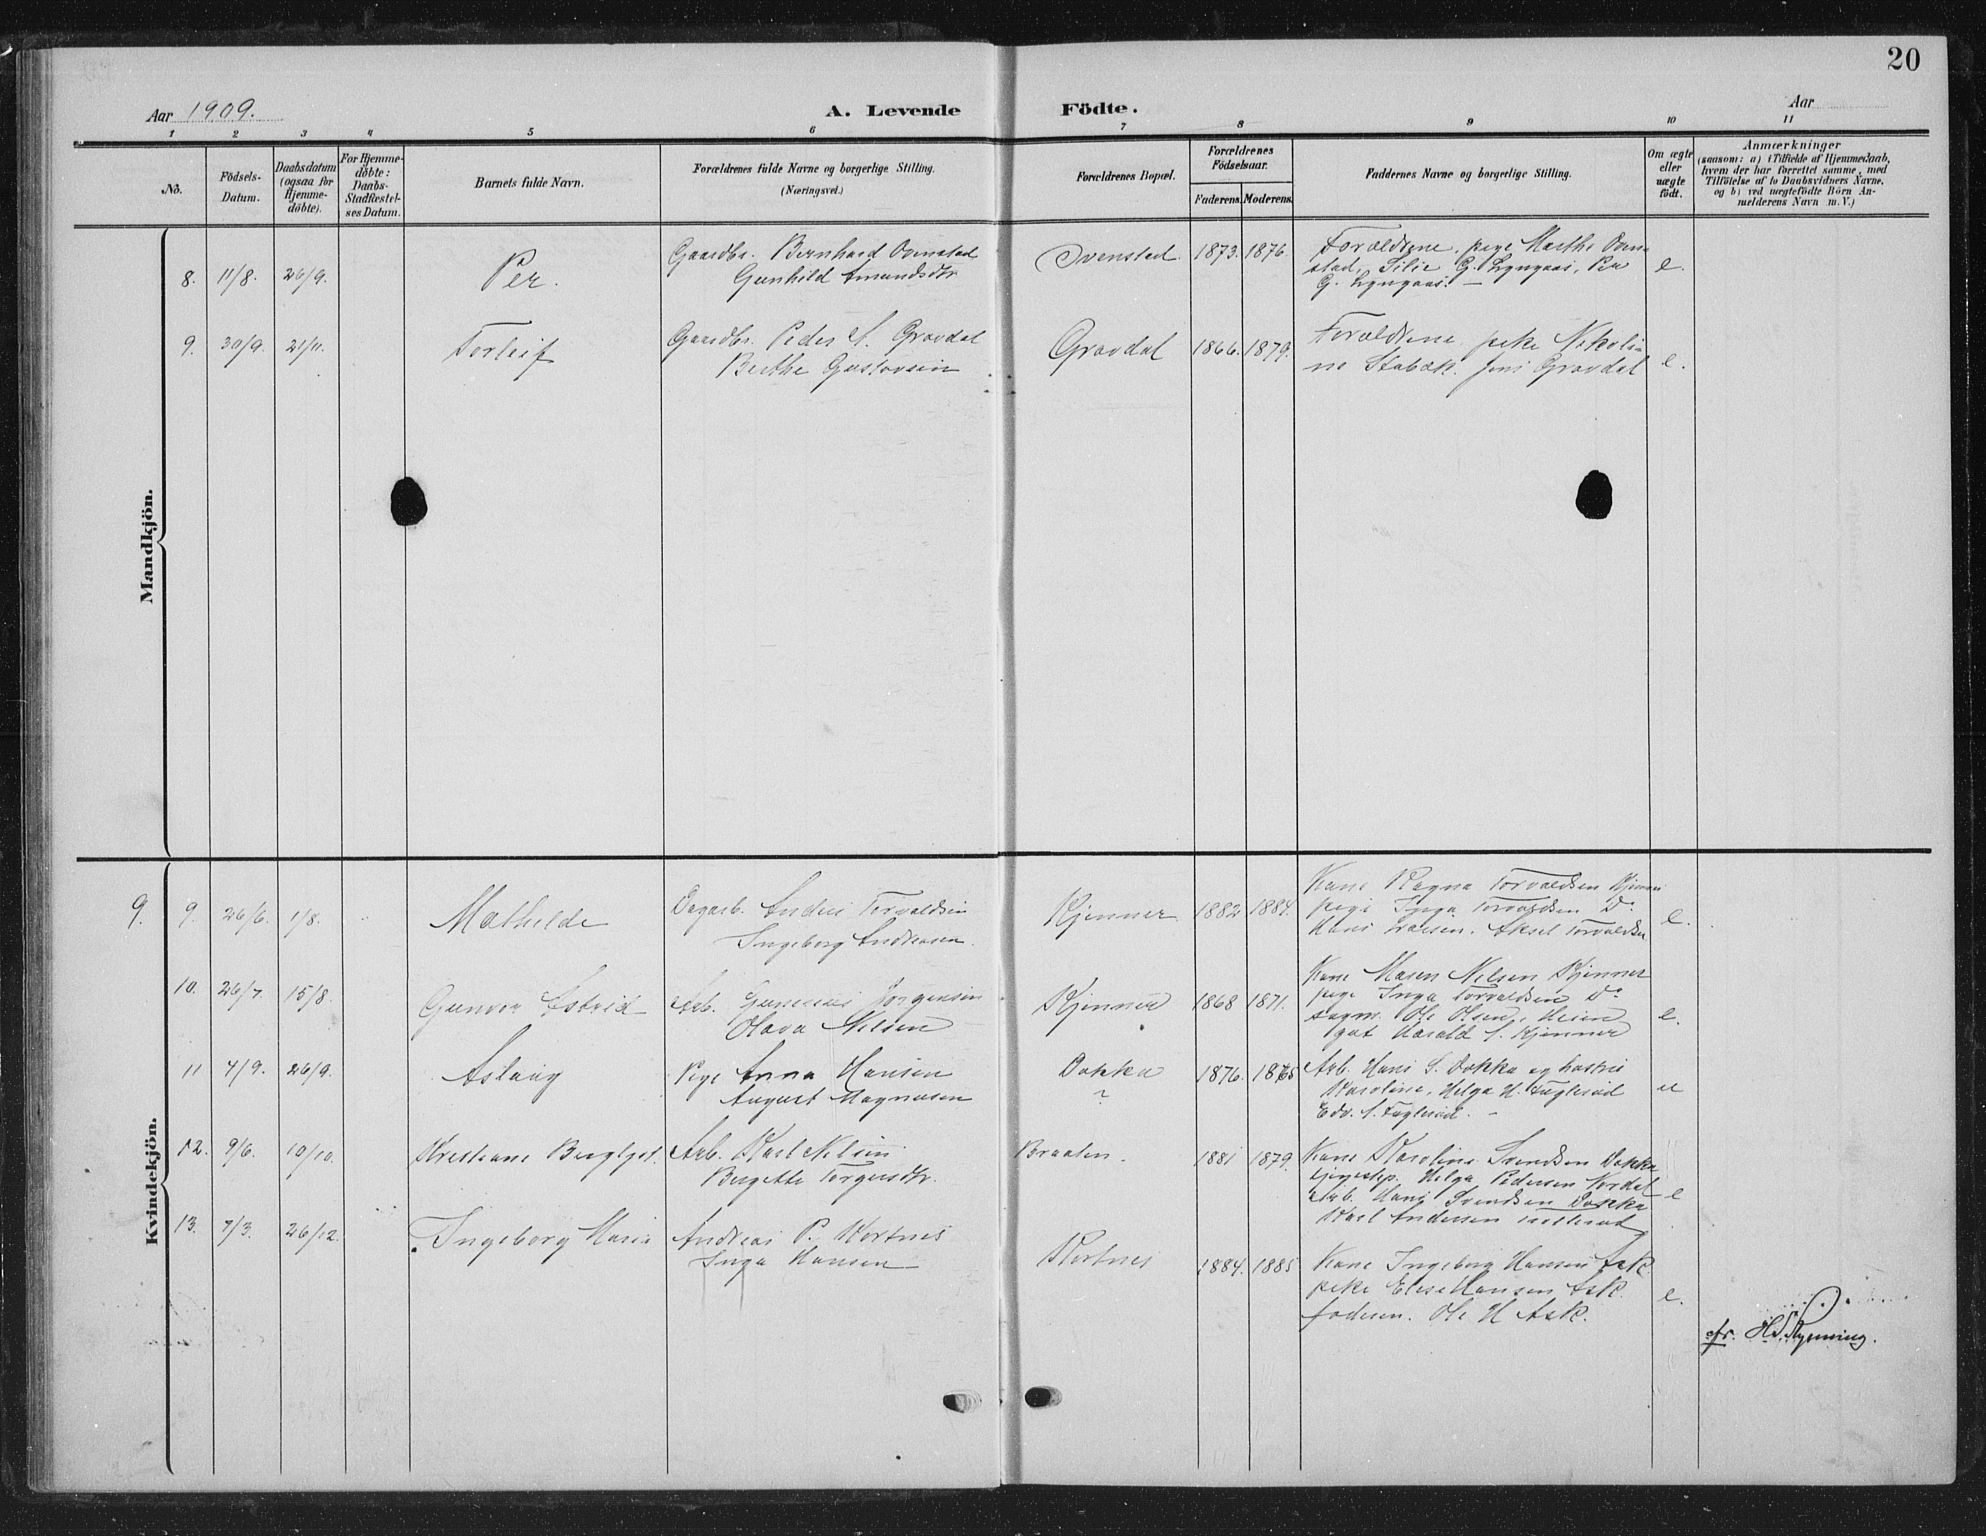 20
Aar 1909.
A. Levende Födte.
Aar
1 2 3 4 5 6 7 8 9 10 11
No.
Födsels-
Datum.
Daabsdatum
(ogsaa for
Hjemme-
döbte).
For Hjemme-
döbte:
Daabs-
Stadfæstel-
ses Datum.
Barnets fulde Navn.
Forældrenes fulde Navne og borgerlige Stilling.
(Næringsvei.)
Forældrenes Bopæl.
Forældrenes
Födselsaar.
Faderens. Moderens.
Faddernes Navne og borgerlige Stilling.
Om ægte
eller
uægte
födt.
Anmærkninger
(saasom: a) i Tilfælde af Hjemmedaab,
hvem der har forrettet samme, med
Tilföielse af to Daabsvidners Navne,
og b) ved uægtefödte Börn An-
melderens Navn m. V.)
Mandkjön.
8. 11/8. 26/9. Per.
Gaardbr. Bernhard Ovenstad
Gunhild Amundsdtr
Ovenstad. 1873. 1876.
Forældrene, pige Marthe Oven
stad, Silie G. Lyngaas, Per
G. Lyngaas. —
e.
9. 30/9. 21/11. Torleif
Gaardbr. Peder S. Gravdal
Berthe Gustavsen
Gravdal 1866. 1879.
Forældrene, pike Nikoli-
ne Stabæk. Jens Gravdal
e.
Kvindekjön.
9. 9. 26/6. 1/8. Mathilde
Dagarb. Anders Torvaldsen
Ingeborg Andreasen.
Kjenner 1882 1884.
Kone Ragna Torvaldsen Kjenner
pige Inga Torvaldsen Do
Hans Iversen. Aksel Torvaldsen
e.
10. 26/7. 15/8. Gunvor Astrid
Arb. Gunerius Jörgensen
Olava Nilsen
Kjenner 1868 1871.
Kone Maren Nilsen Kjenner
pige Inga Torvaldsen Do
sagm. Ole Olsen, Heien
gut Harald S. Kjenner
e.
11 4/9. 26/9. Aslaug
Pige Anna Hansen
August Magnusen
Dokka
"
1876. 1875
Arb. Hans S. Dokka og hustru
Karoline, Helga H. Fuglerud
Edv. S. Fuglerud. —
u
12. 9/6. 10/10. Kristiane Bergljot.
Arb. Karl Nilsen
Bergitte Torgersdtr.
Braaten. 1881 1879.
Kone Karoline Svendsen Dokka
tjenestep. Helga Pedersen Nordal
Arb. Hans Svendsen Dokka
Karl Andersen
e
13. 7/3. 26/12. Ingeborg Marie
Andreas P. Kortnes
Inga Hansen
Kortnes 1884. 1885
Kone Ingeborg Hansen Ask
pike Elise Hansen Ask
faderen. Ole H Ask.
e.